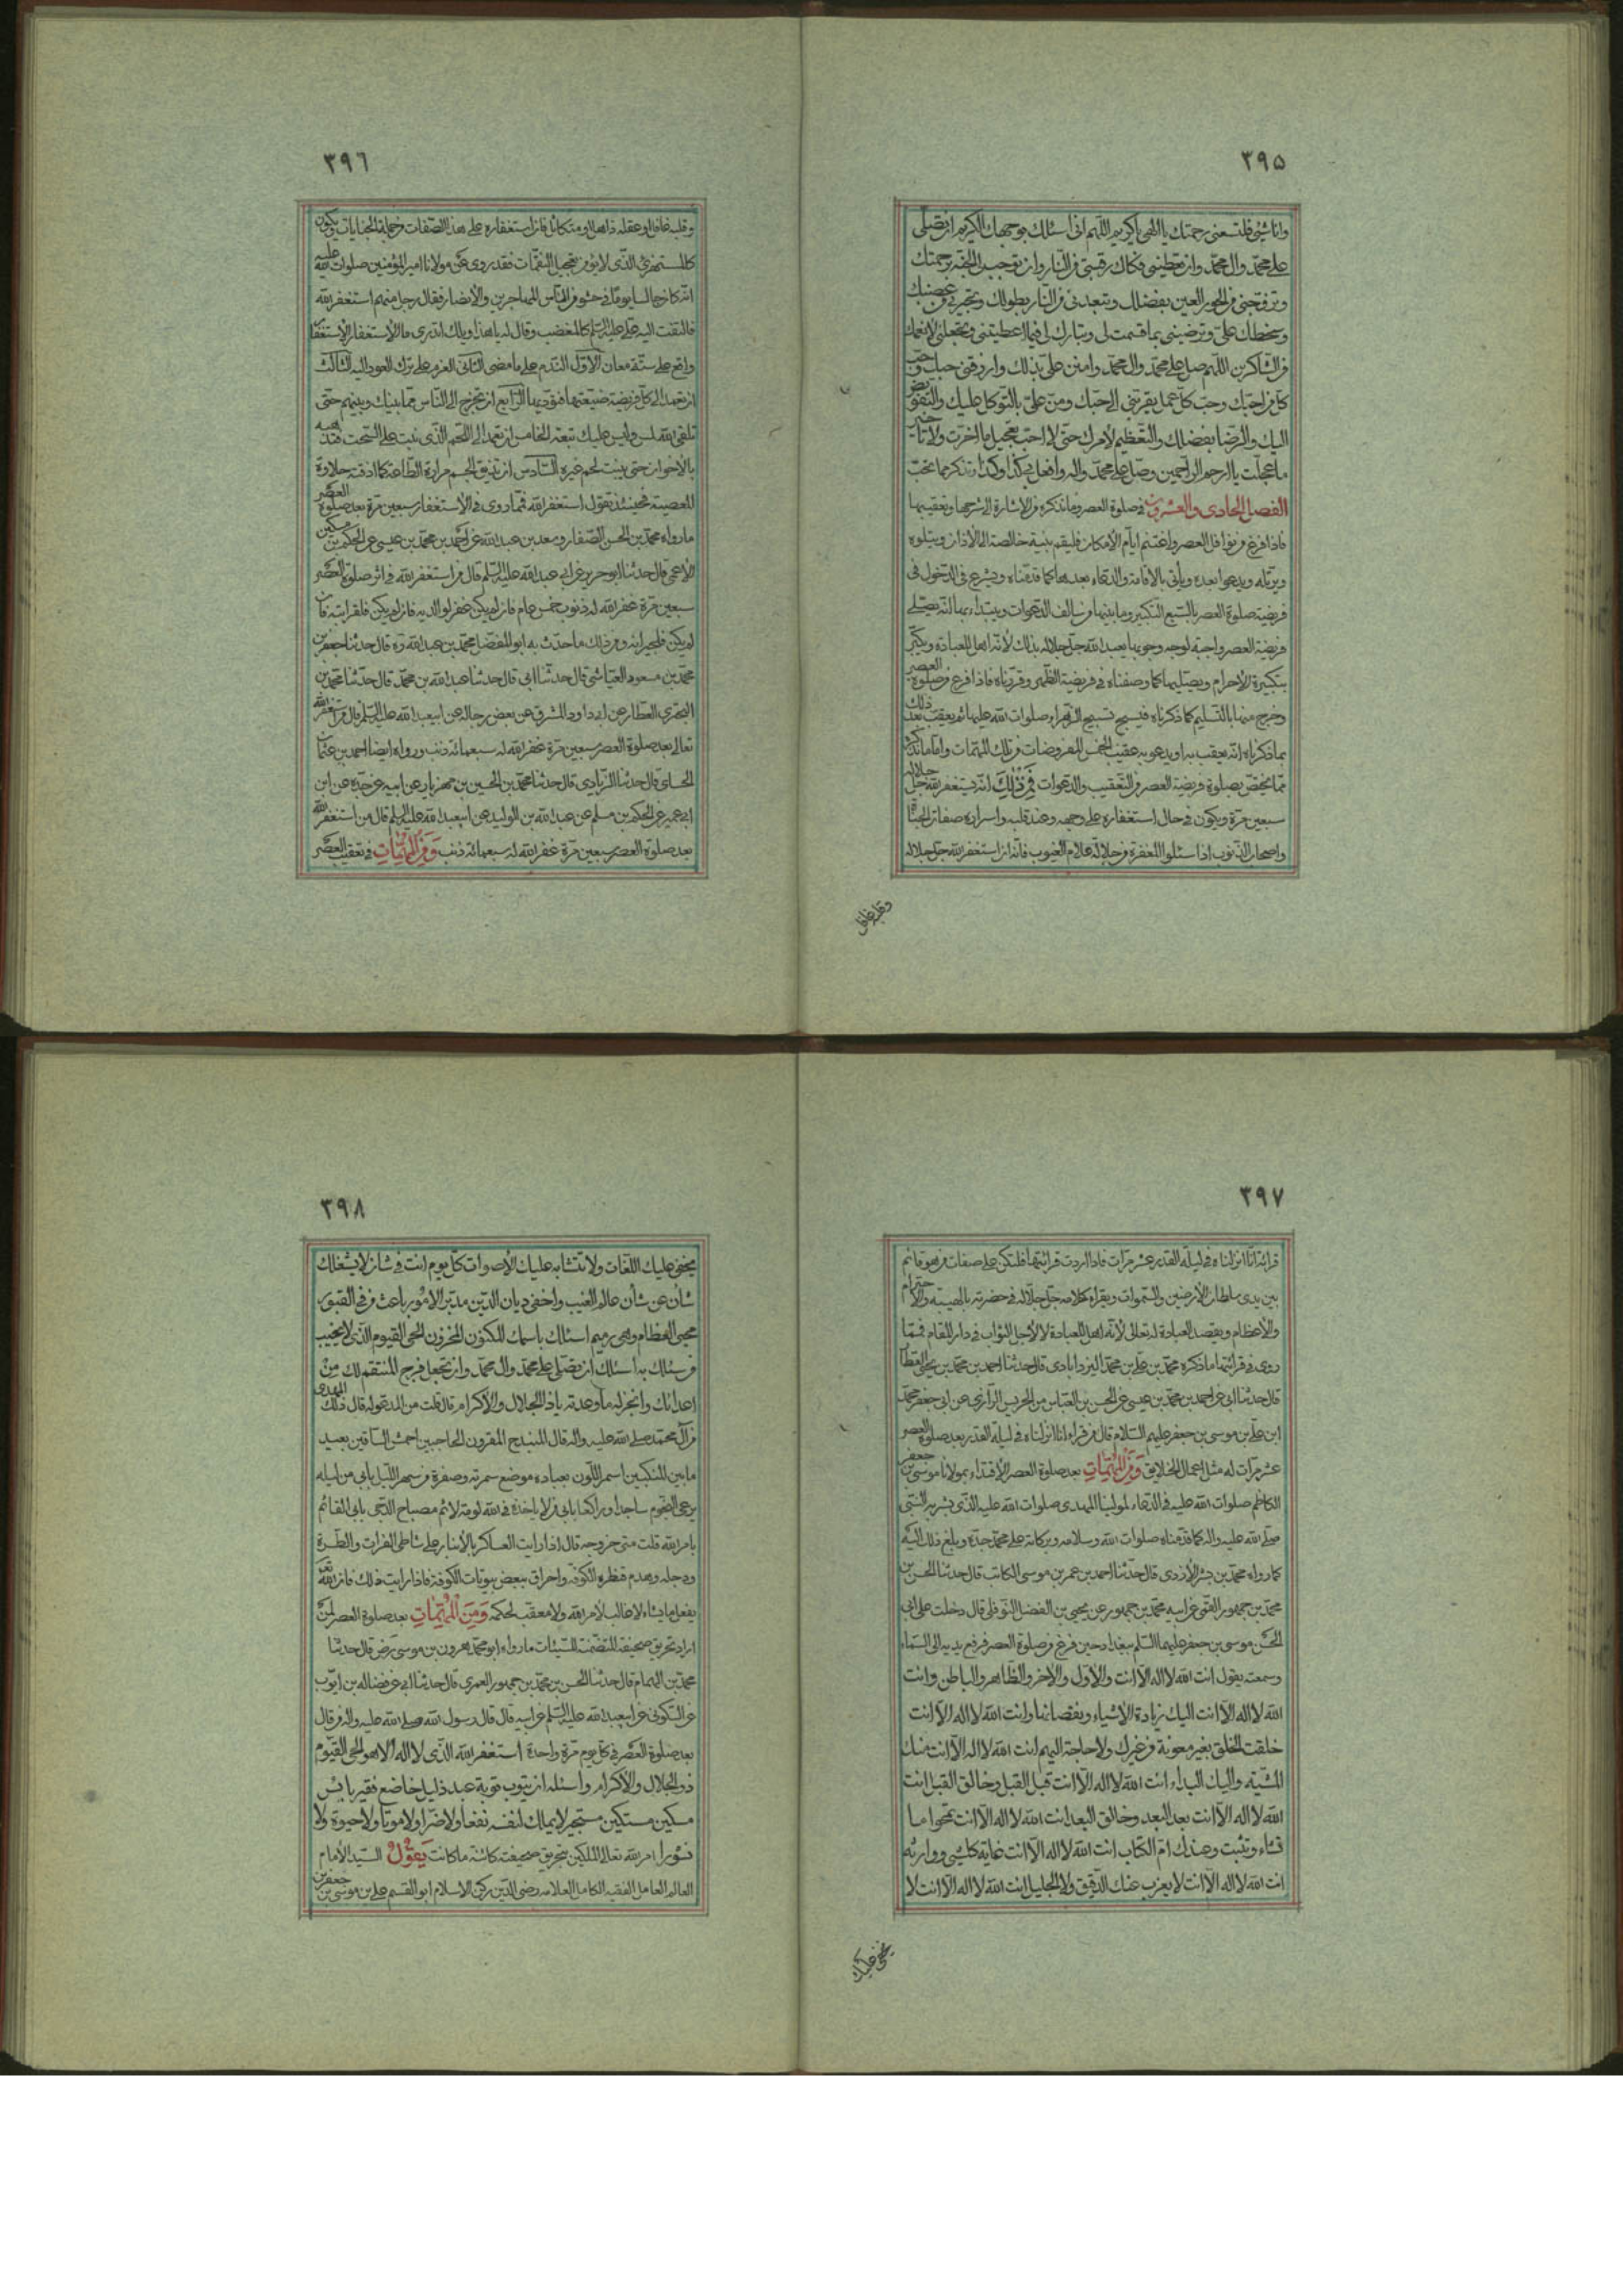 ٣٩٥
وانا شئ فلتسعنى رحمتك يا الهى يا كريم اللهم انى اسئلك بوجهك الكريم ان تصلى
على محمد وال محمد وان تعطينى فكاك رقبتى من النار وان توجب لى الجنة برحمتك
وتزوجنى من الحور العين بفضلك وتعيذنى من النار بطولك وتجيرنى من غضبك
وسخطك على وترضينى بما قسمت لى وتبارك لى فيما اعطيتنى وتجعلنى لانعمك
من الشاكرين اللهم صل على محمد وال محمد وامنن على بذلك وارزقنى حبك وحب
كل من احبك وحب كل عمل يقربنى الى حبك ومن على بالتوكل عليك والتفويض
اليك والرضا بقضائك والتعظيم لامرك حتى لا احب تعجيل ما اخرت ولا تاخير
ما عجلت يا ارحم الراحمين وصل على محمد واله وافعل بى كذا وكذا وتذكر ما تحب
الفصل الحادى والعشرون فى صلوة العصر وما نذكره من الاشارة الى شرحها وتعقيبها
فاذا فرغ من نوافل العصر واغتنم ايام الامكان فليقم بنية خالصة الى الاذان ويتلوه
ويرتله ويدعوا بعده ويأتى بالاقامة والدعاء بعدها كما قدمناه ويشرع فى الدخول فى
فريضة صلوة العصر بالسبع التكبير وما بينها من سالف الدعوات ويبتداء بما انه يصلى
فريضة العصر واجبة لوجه وجوبها يعبد الله جل جلاله بذلك لانه اهل للعبادة ويكبر
بتكبيرة الاحرام ويصليها كما وصفناه فى فريضة الظهر وقررناه فاذا فرغ من صلوة العصر
وخرج منها بالتسليم كما ذكرناه فيسبح تسبيح الزهراء صلوات الله عليها ثم يعقب بعد ذلك
بما ذكرناه انه يعقب به او يدعو به عقيب الخمس المفروضات من تلك المهمات واما ما نذكره
مما يختص بصلوة فريضة العصر من التعقيب والدعوات فمن ذلك انه يستغفر الله جل جلاله
سبعين مرة ويكون فى حال استغفاره على وجهه وعند قلبه واسراره صفات اهل الجنايات
واصحاب الذنوب اذا سئلوا المغفرة من جلالة علام الغيوب فانه ان استغفر الله جل جلاله
وقلبه غافل
٣٩٦
وقلبه غافل او عقله ذاهل او متكاسل فان استغفاره على هذه الصفات من جملة الجنايات ويكون
كالمستهزئ الذى لا يؤمن تعجيل النقمات فقد روى عن مولانا امير المؤمنين صلوات الله عليه
انه كان جالسا يوما فى حشد من الناس المهاجرين والانصار فقال رجل منهم استغفر الله
فالتفت اليه على عليه السلم كالمغضب وقال له يا هذا ويلك اتدرى ما الاستغفار الاستغفار
واقع على ستة معان الاول الندم على ما مضى الثانى العزم على ترك العود اليه الثالث
ان تعمد الى كل فريضة ضيعتها فتؤديها الرابع ان تخرج الى الناس مما بينك وبينهم حتى
تلقى الله املس وليس عليك تبعة الخامس ان تعمد الى اللحم الذى نبت على السحت فتذيبه
بالاحزان حتى ينبت لحم غيره السادس ان تذيق الجسم مرارة الطاعة كما اذقته حلاوة
المعصية فحينئذ تقول استغفر الله ثم ما روى فى الاستغفار سبعين مرة بعد صلوة العصر
ما رواه محمد بن الحسن الصفار وسعد بن عبد الله عن احمد بن محمد بن عيسى عن الحكم بن مسكين
الاعمى قال حدثنا ابو جرير عن ابى عبد الله عليه السلم قال من استغفر الله فى اثر صلوة العصر
سبعين مرة غفر الله له ذنوب خمسين عام فان لم يكن غفر لوالديه فان لم يكن فلقرابته فان
لم يكن فلجيرانه ومن ذلك ما حدث به ابو المفضل محمد بن عبد الله ره قال حدثنا جعفر بن
محمد بن مسعود العياشى قال حدثنا ابى قال حدثنا عبد الله بن محمد قال حدثنا محمد بن
البخترى العطار عن ابى داود المسترق عن بعض رجاله عن ابيعبد الله عليه السلم قال من استغفر الله
تعالى بعد صلوة العصر سبعين مرة غفر الله له سبعمائة ذنب ورواه ايضا احمد بن عثمان
الحلى قال حدثنا الزيادى قال حدثنا محمد بن الحسين بن مهزيار عن ابيه عن جده عن ابن
ابى عمير عن الحكم بن مسلم عن عبد الله بن الوليد عن ابيعبد الله عليه السلم قال من استغفر الله
بعد صلوة العصر سبعين مرة غفر الله له سبعمائة ذنب ومن المهمات فى تعقيب العصر
٣٩٧
قرائة انا انزلناه فى ليلة القدر عشر مرات فاذا اردت قرائتها فلتكن على صفات من هو قائم
بين يدى سلطان الارضين والسموات ويقراء كلامه جل جلاله فى حضرته بالهيبة والاحترام
والاعظام ويقصد العبادة له تعالى لانه اهل للعبادة لا لاجل الثواب فى دار المقام فمما
روى فى قرائتها ما ذكره محمد بن على بن محمد اليزدابادى قال حدثنا احمد بن محمد بن يحيى العطار
قال حدثنا ابى عن احمد بن محمد بن عيسى عن الحسن بن العباس بن الحريش الرازى عن ابى جعفر محمد
ابن على بن موسى بن جعفر عليهم السلام قال من قراء انا انزلناه فى ليلة القدر بعد صلوة العصر
عشر مرات له مثل اعمال الخلايق ومن المهمات بعد صلوة العصر الاقتداء بمولانا موسى بن جعفر
الكاظم صلوات الله عليه فى الدعاء لمولينا المهدى صلوات الله عليه الذى بشر به النبى
صلى الله عليه واله كما قدمناه صلوات الله وسلامه وبركاته على محمد جده وبلغ ذلك اليه
كما رواه محمد بن بشر الازدى قال حدثنا احمد بن عمر بن موسى الكاتب قال حدثنا الحسن بن
محمد بن جمهور القمى عن ابيه محمد بن جمهور عن يحيى بن الفضل النوفلى قال دخلت على ابى
الحسن موسى بن جعفر عليهما السلم ببغداد حين فرغ من صلوة العصر فرفع يديه الى السماء
وسمعته يقول انت الله لا اله الا انت والاول والاخر والظاهر والباطن وانت
الله لا اله الا انت اليك زيادة الاشياء ونقصانها وانت الله لا اله الا انت
خلقت الخلق بغير معونة من غيرك ولا حاجة اليهم انت الله لا اله الا انت منك
المشية واليك البداء انت الله لا اله الا انت قبل القبل وخالق القبل انت
الله لا اله الا انت بعد البعد وخالق البعد انت الله لا اله الا انت تمحوا ما
تشاء وتثبت وعندك ام الكتاب انت الله لا اله الا انت غاية كل شئ ووارثه
انت الله لا اله الا انت لا يعزب عنك الدقيق ولا الجليل انت الله لا اله الا انت لا
يخفى عليك
٣٩٨
يخفى عليك اللغات ولا تتشابه عليك الاصوات كل يوم انت فى شان لا يشغلك
شأن عن شأن عالم الغيب واخفى ديان الدين مدبر الامور باعث من فى القبور
محيى العظام وهى رميم اسئلك باسمك المكنون المخزون الحى القيوم الذى لا يخيب
من سئلك به اسئلك ان تصلى على محمد وال محمد وان تعجل فرج المنتقم لك من
اعدائك وانجز له ما وعدته ياذا الجلال والاكرام قال قلت من المدعو له قال ذلك المهدى
من آل محمد صلى الله عليه واله قال المنبدح المقرون الحاجبين احمش الساقين بعيد
ما بين المنكبين اسمر اللون يعتاده مع سمرته صفرة من سهر الليل بابى من ليله
يرعى النجوم ساجدا وراكعا بابى من لا ياخذه فى الله لومة لائم مصباح الدجى بابى القائم
بامر الله قلت متى خروجه قال اذا رايت العساكر بالانبار على شاطى الفرات والصراة
ودجلة وهدم قنطرة الكوفة واحراق بعض بيوتات الكوفة فاذا رايت ذلك فان الله
يفعل ما يشاء لا غالب لامر الله ولا معقب لحكمه ومن المهمات بعد صلوة العصر لمن
اراد تحريق صحيفته المتضمنة للسيئات ما رواه ابو محمد هرون بن موسى رض قال حدثنا
محمد بن همام قال حدثنا الحسن بن محمد بن جمهور العمرى قال حدثنا ابى عن فضالة بن ايوب
عن السكونى عن ابيعبد الله عليه السلم عن ابيه قال قال رسول الله صلى الله عليه واله من قال
بعد صلوة العصر فى كل يوم مرة واحدة استغفر الله الذى لا اله الا هو الحى القيوم
ذو الجلال والاكرام واسئله ان يتوب توبة عبد ذليل خاضع فقير بائس
مسكين مستكين مستجير لا يملك لنفسه نفعا ولا ضرا ولا موتا ولا حيوة ولا
نشورا امر الله تعالى الملكين بتحريق صحيفته كائنة ما كانت يقول السيد الامام
العالم العامل الفقيه الكامل العلامة رضى الدين ركن الاسلام ابو القسم على بن موسى بن جعفر بن